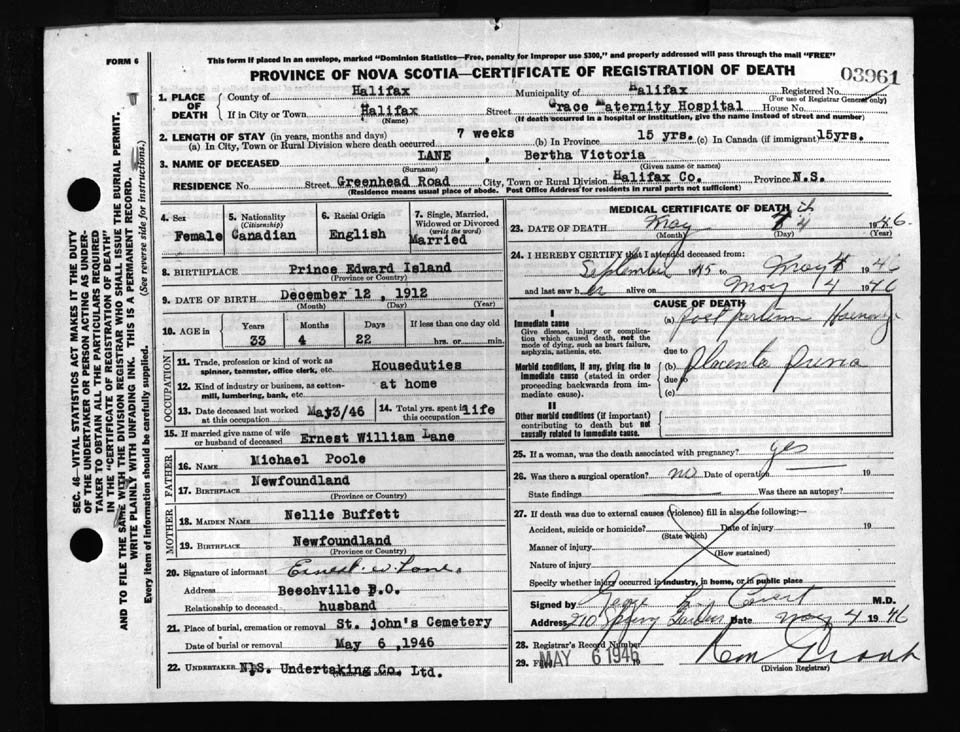 FORM 6
This form if placed in an envelope, marked "Dominion Statistics—Free, penalty for improper use $300," and properly addressed will pass through the mail "FREE"
PROVINCE OF NOVA SCOTIA—CERTIFICATE OF REGISTRATION OF DEATH
03961
1. PLACE OF DEATH
County of Halifax Municipality of Halifax Registered No.
(For use of Registrar General only)
If in City or Town Halifax Street Grace Maternity Hospital House No.
(Name) (If death occurred in a hospital or institution, give the name instead of street and number)
2. LENGTH OF STAY (in years, months and days)
(a) In City, Town or Rural Division where death occurred 7 weeks (b) In Province 15 yrs. (c) In Canada (if immigrant) 15yrs.
3. NAME OF DECEASED LANE , Bertha Victoria
(Surname) (Given name or names)
RESIDENCE No. Street Greenhead Road City, Town or Rural Division Halifax Co. Province N.S.
(Residence means usual place of abode. Post Office Address for residents in rural parts not sufficient)
4. Sex
Female
5. Nationality
(Citizenship)
Canadian
6. Racial Origin
English
7. Single, Married, Widowed or Divorced
(write the word)
Married
8. BIRTHPLACE Prince Edward Island
(Province or Country)
9. DATE OF BIRTH December 12 , 1912
(Month) (Day) (Year)
10. AGE in
Years Months Days If less than one day old
33 4 22 hrs. or min.
OCCUPATION
11. Trade, profession or kind of work as spinner, teamster, office clerk, etc. Houseduties
12. Kind of industry or business, as cotton-mill, lumbering, bank, etc. at home
13. Date deceased last worked at this occupation May3/46
14. Total yrs. spent in this occupation life
15. If married give name of wife or husband of deceased Ernest William Lane
FATHER
16. NAME Michael Poole
17. BIRTHPLACE Newfoundland
(Province or Country)
MOTHER
18. MAIDEN NAME Nellie Buffett
19. BIRTHPLACE Newfoundland
(Province or Country)
20. Signature of informant Ernest W Lane.
Address Beechville P.O.
Relationship to deceased husband
21. Place of burial, cremation or removal St. john's Cemetery
Date of burial or removal May 6 ,1946
22. UNDERTAKER N.S. Undertaking Co. Ltd.
(Name and address)
MEDICAL CERTIFICATE OF DEATH
23. DATE OF DEATH May 4 1946.
(Month) (Day) (Year)
24. I HEREBY CERTIFY that I attended deceased from:
September 1945 to May 4 1946
and last saw her alive on May 4 1946
CAUSE OF DEATH
I
Immediate cause
Give disease, injury or complication which caused death, not the mode of dying, such as heart failure, asphyxia, asthenia, etc.
(a) post partum
due to
Morbid conditions, if any, giving rise to immediate cause (stated in order proceeding backwards from immediate cause).
(b) Placenta
due to
(c)
II
Other morbid conditions (if important) contributing to death but not causally related to immediate cause.
25. If a woman, was the death associated with pregnancy? yes
26. Was there a surgical operation? no Date of operation 19
State findings Was there an autopsy?
27. If death was due to external causes (violence) fill in also the following:—
Accident, suicide or homicide? Date of injury 19
(State which)
Manner of injury
(How sustained)
Nature of injury
Specify whether injury occurred in industry, in home, or in public place
Signed by George M.D.
Address 210 Spring Garden Date May 4 1946
28. Registrar's Record Number
29. Filed MAY 6 1946
(Division Registrar)
SEC. 46—VITAL STATISTICS ACT MAKES IT THE DUTY
OF THE UNDERTAKER OR PERSON ACTING AS UNDER-
TAKER TO OBTAIN ALL THE PARTICULARS REQUIRED
IN THE "CERTIFICATE OF REGISTRATION OF DEATH"
AND TO FILE THE SAME WITH THE DIVISION REGISTRAR WHO SHALL ISSUE THE BURIAL PERMIT.
WRITE PLAINLY WITH UNFADING INK. THIS IS A PERMANENT RECORD.
Every item of information should be carefully supplied. (See reverse side for instructions.)